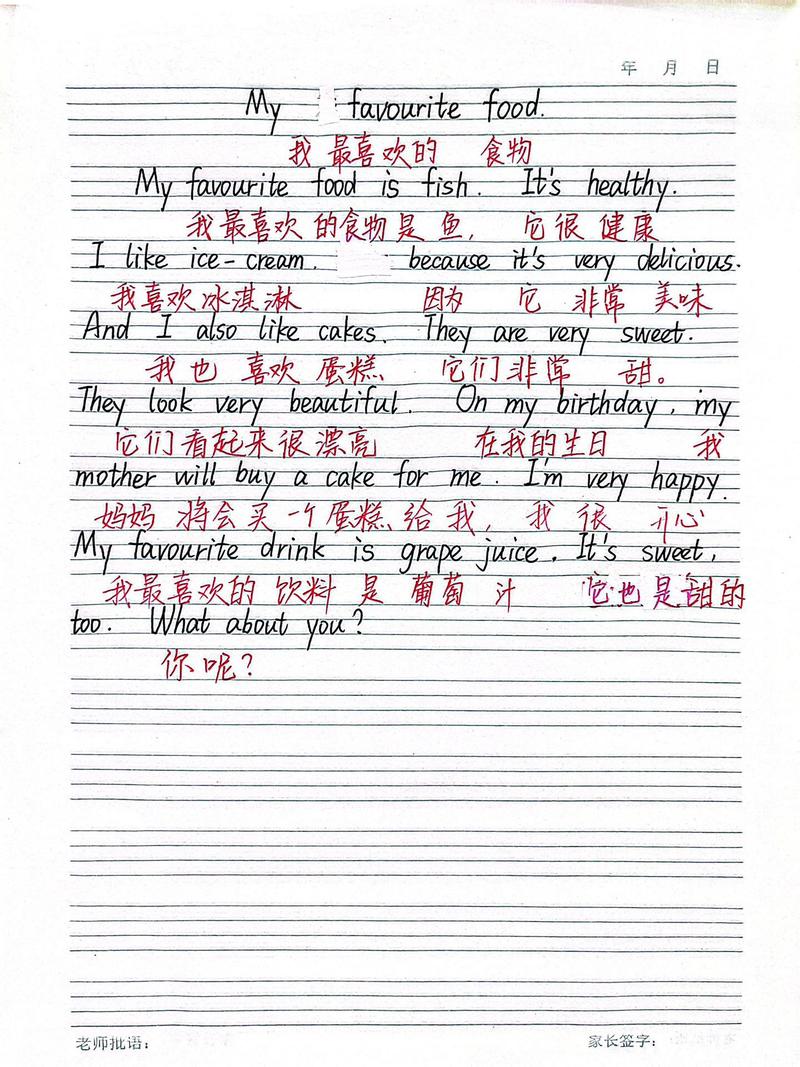 年 月 日
My favourite food.
我最喜欢的 食物
My favourite food is fish. It's healthy.
我最喜欢的食物是鱼, 它很健康
I like ice-cream. because it's very delicious.
我喜欢冰淇淋 因为 它 非常 美味
And I also like cakes. They are very sweet.
我也喜欢蛋糕、 它们非常 甜。
They look very beautiful. On my birthday, my
它们看起来很漂亮 在我的生日 我
mother will buy a cake for me. I'm very happy.
妈妈将会买一个蛋糕给我, 我很开心
My favourite drink is grape juice. It's sweet,
我最喜欢的饮料是葡萄汁 它也是甜的
too. What about you?
你呢?
老师批语: 家长签字: